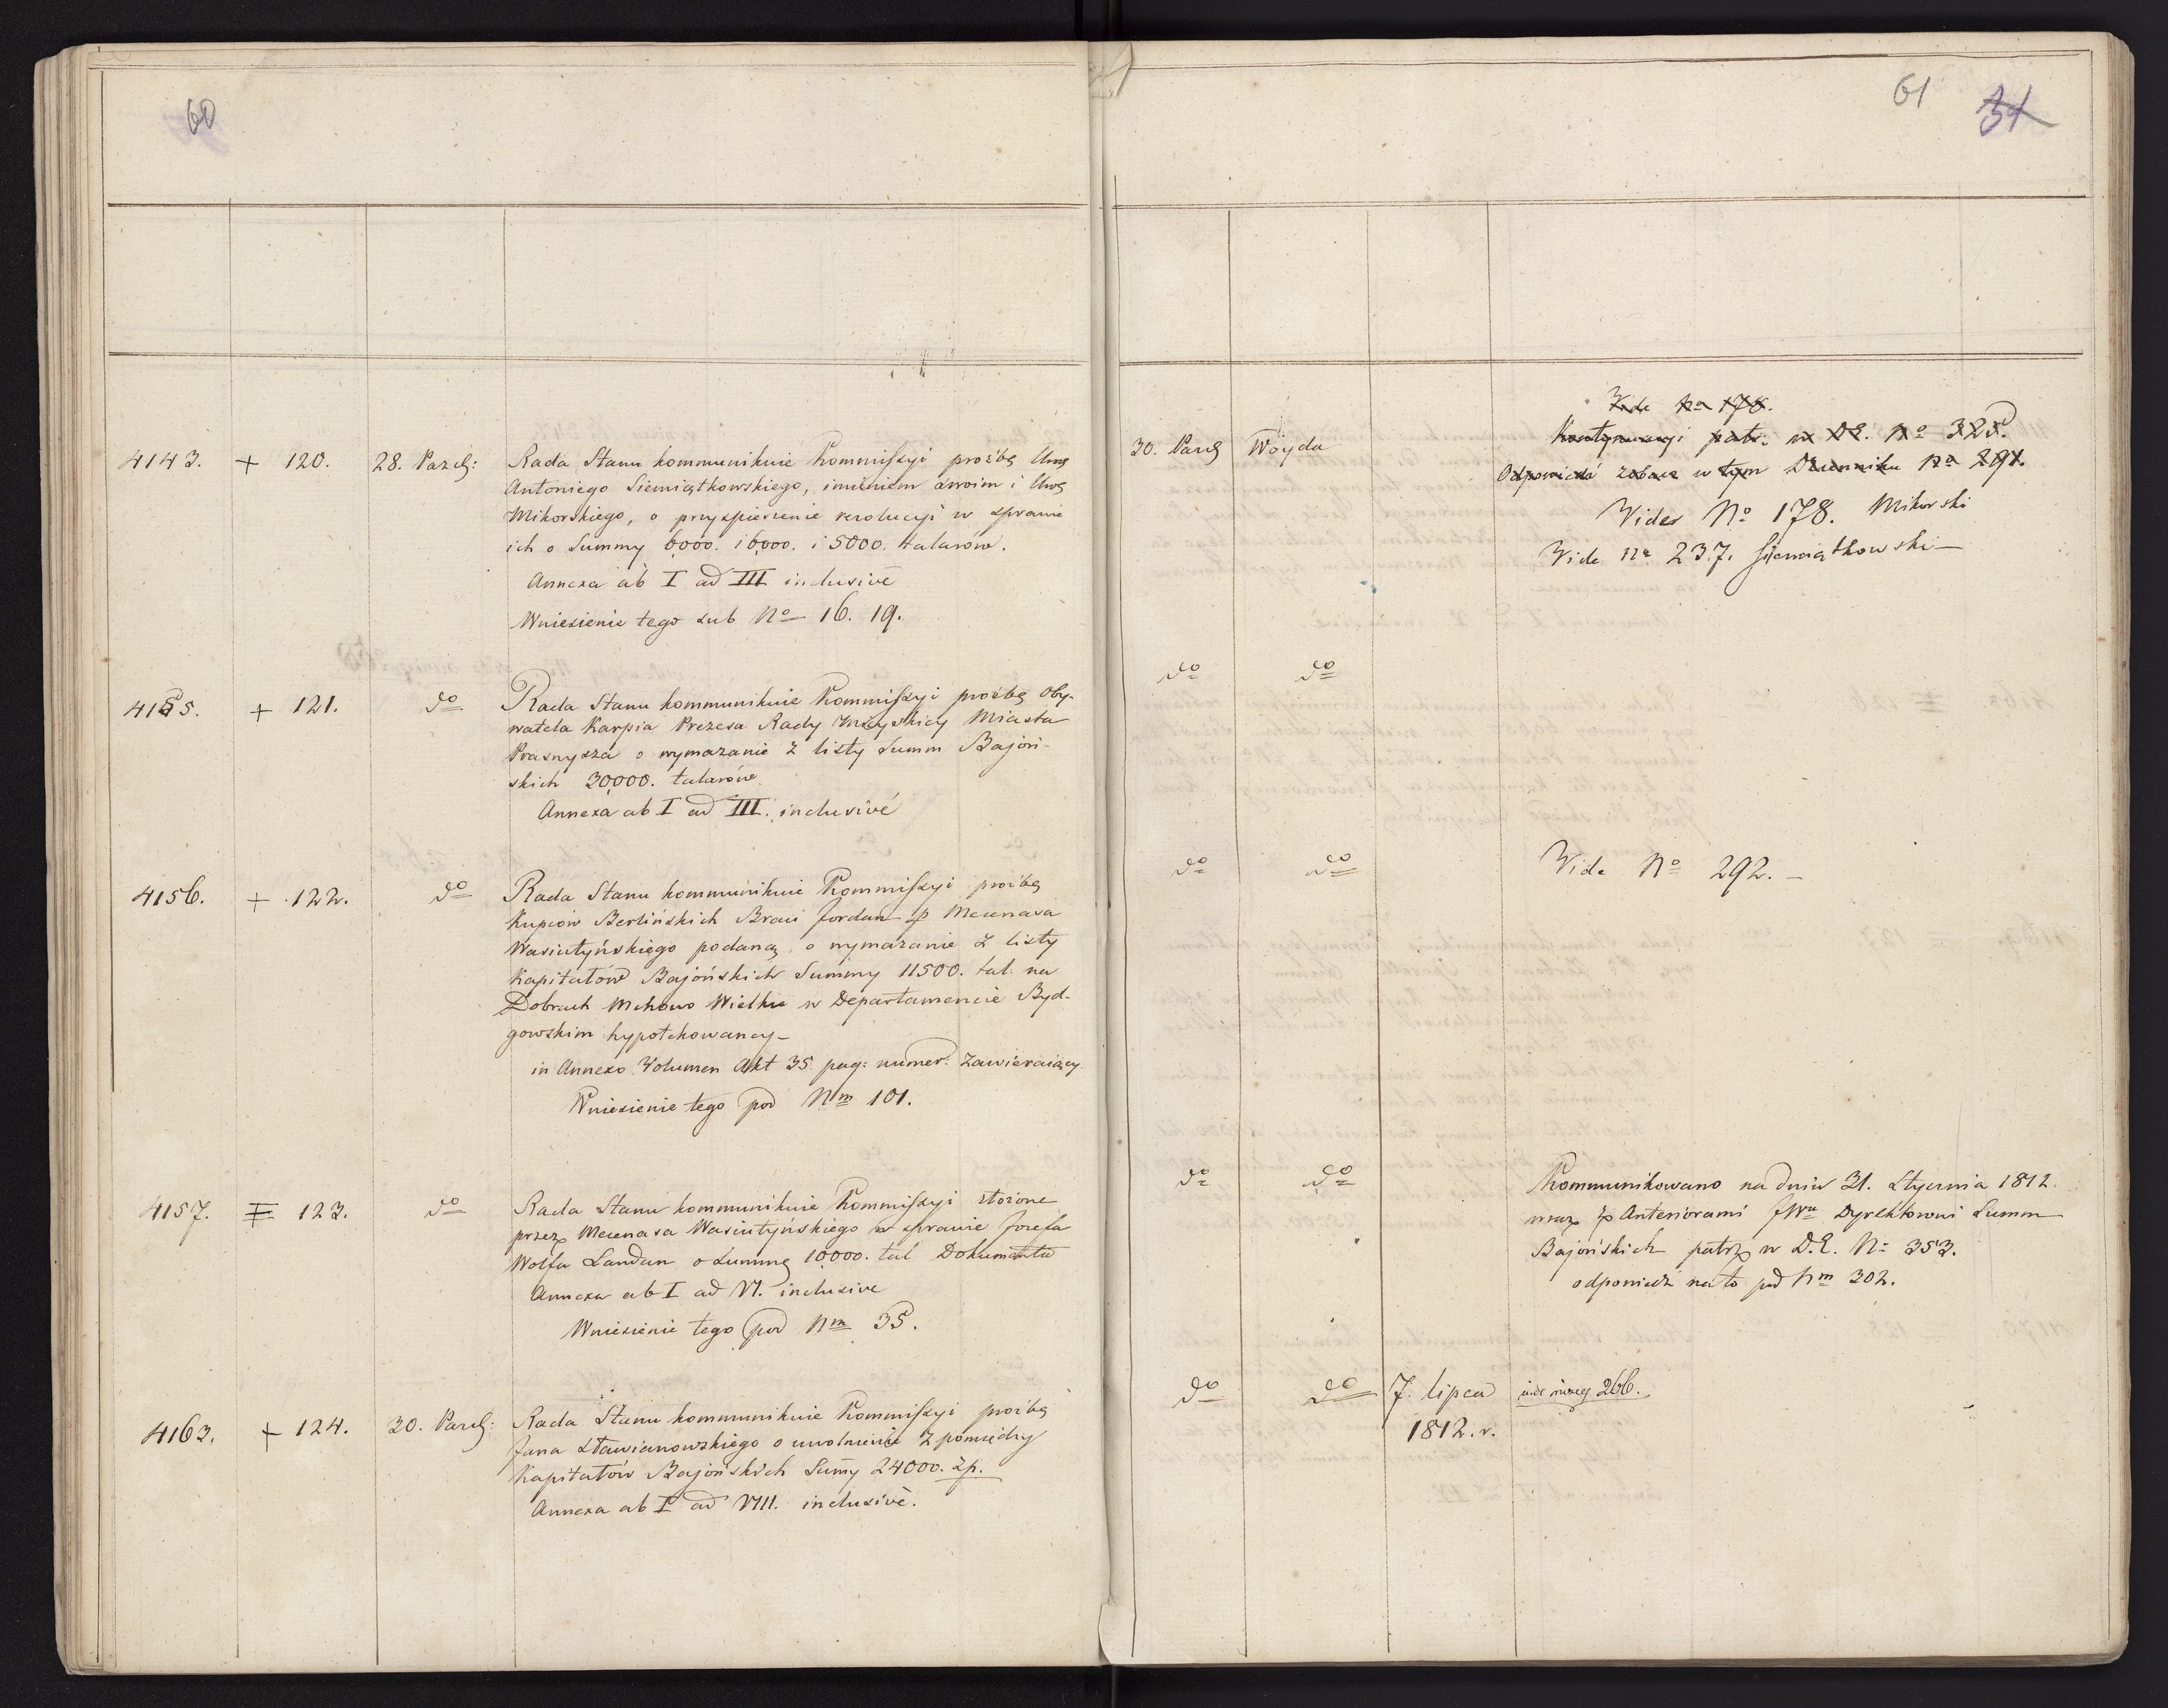 60
4143. + 120. 28. Pazdz: Rada Stanu kommunikuie Kommissyi proźbę Urog
Antoniego Siemiątkowskiego, imieniem swoim i Urog
Mikorskiego, o przyspieszenie rezolucyi w sprawie
ich o Summy 6000. i 6000. i 5000. talarów.
Annexa ab I ad III inclusive
Wniesienie tego sub No 16. 19.
4155. + 121. do Rada Stanu kommunikuie Kommissyi proźbę Oby-
watela Karpia Prezesa Rady Muncypalney Miasta
Prasnysza o wymazanie z listy Summ Bajoń-
skich 30,000. talarów
Annexa ab I ad III. inclusivé
4156. + 122. do Rada Stanu kommunikuie Kommissyi proźbę
Kupców Berlińskich Braci Jordan p Mecenasa
Wasiutyńskiego podaną, o wymazanie z listy
Kapitałów Bajońskich Summy 11500. tal. na
Dobrach Mchowo Wielkie w Departamencie Byd-
gowskim hypotekowaney
in Annexo Volumen Akt 35. pag: numer. zawieraiący
Wniesienie tego pod Nm 101.
4157. + 123. do Rada Stanu kommunikuie Kommissyi złożone
przez Mecenasa Wasiutyńskiego w sprawie Josefa
Wolfa Landau o Summę 10,000. tal Dokumenta
Annexa ab I ad VI. inclusive
Wniesienie tego pod Nm 35.
4163. + 124. 30. Pazdz: Rada Stanu kommunikuie Kommissyi proźbę
Jana Sławianowskiego o uwolnienie z pomiędzy
Kapitałów Bajońskich Sumy 24000. zp.
Annexa ab I ad VIII. inclusivé.
61 31
Vide No 178.
30. Pazdz Woyda patr. w DE. No 325.
Odpowiedź zobacz w tym Dzienniku No 291.
Vide No 178. Mikorski
Vide No 237. Siemiątkowski
do do
do do Vide No 292.
do do Kommunikowano na dniu 31. Stycznia 1812.
wraz z Anteriorami JWu Dyrektorowi Summ
Bajońskich patrz w D.E. No 353.
odpowiedź na to pod Nm 302.
do do 7. lipca vide niżey 266.
1812. r.